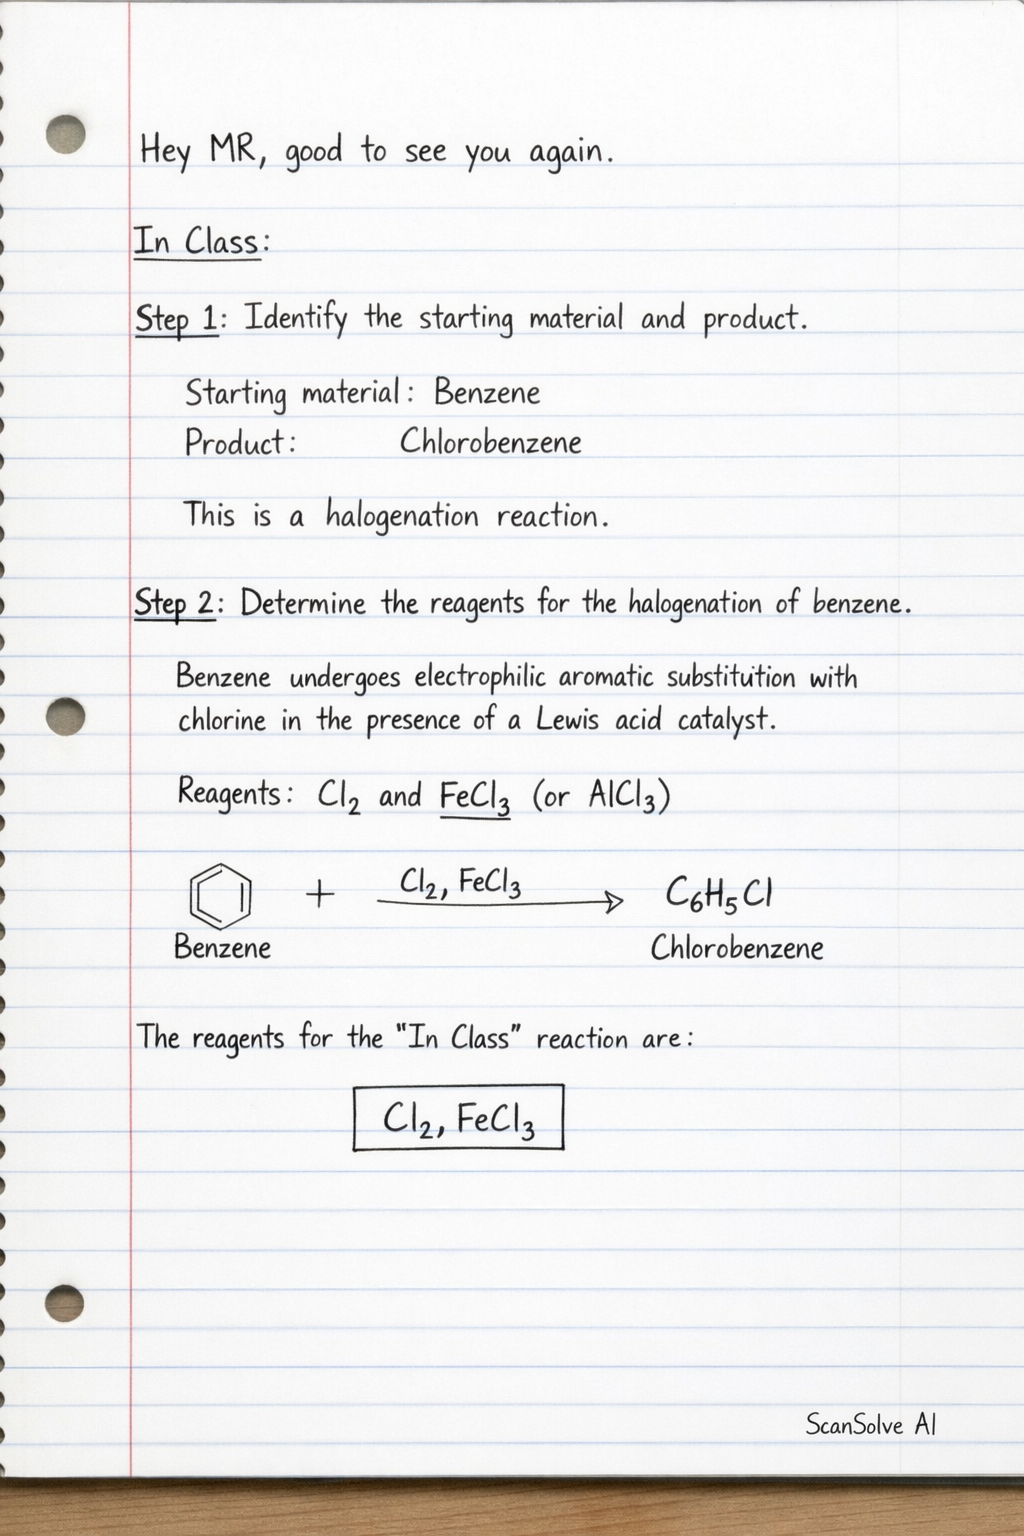 Hey MR, good to see you again.
In Class:
Step 1: Identify the starting material and product.
Starting material: Benzene
Product: Chlorobenzene
This is a halogenation reaction.
Step 2: Determine the reagents for the halogenation of benzene.
Benzene undergoes electrophilic aromatic substitution with
chlorine in the presence of a Lewis acid catalyst.
Reagents: Cl₂ and FeCl₃ (or AlCl₃)
+ Cl₂, FeCl₃ → C₆H₅Cl
Benzene Chlorobenzene
The reagents for the "In Class" reaction are:
Cl₂, FeCl₃
ScanSolve AI